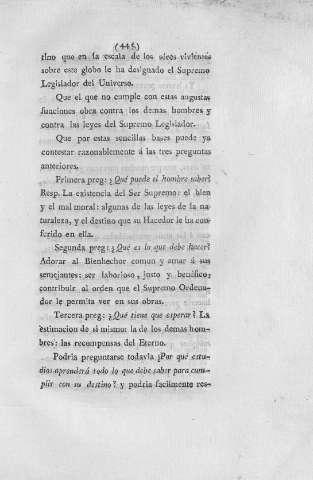 (445)
tino que en la escala de los seres vivientes
sobre este globo le ha designado el Supremo
Legislador del Universo.
Que el que no cumple con estas augustas
funciones obra contra los demas hombres y
contra las leyes del Supremo Legislador.
Que por estas sencillas bases puede ya
contestar razonablemente á las tres preguntas
anteriores.
Primera preg: ¿Qué puede el hombre saber?
Resp. La existencia del Ser Supremo: el bien
y el mal moral: algunas de las leyes de la na-
turaleza, y el destino que su Hacedor le ha con-
ferido en ella.
Segunda preg: ¿Qué es lo que debe hacer?
Adorar al Bienhechor comun y amar á sus
semejantes: ser laborioso, justo y benéfico:
contribuir al orden que el Supremo Ordena-
dor le permita ver en sus obras.
Tercera preg: ¿Qué tiene que esperar? La
estimacion de si mismo: la de los demas hom-
bres: las recompensas del Eterno.
Podria preguntarse todavia ¿Por qué estu-
dios aprenderá todo lo que debe saber para cum-
plir con su destino? y podria facilmente res-